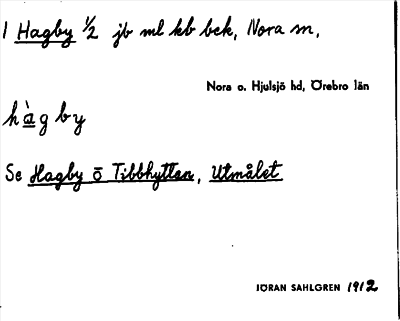 1 Hagby ½ jb ml kb bek, Nora sn,
Nora o. Hjulsjö hd, Örebro län
hàgby
Se Hagby ö Tibbhyttan, Utmålet
JÖRAN SAHLGREN 1912